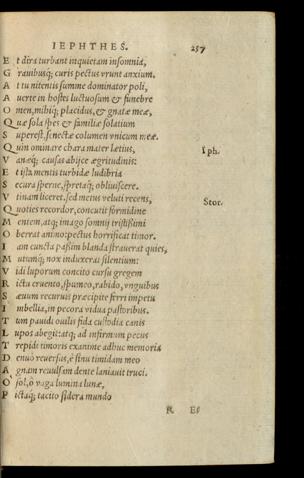 IEPHTHES. 257
E t dira turbant inquietam insomniă,
G rauibusq; curis pectus vrunt anxium.
A t tu nitentis summe dominator poli,
A uerte in hostes luctuosum & funebre
O men, mihiq; placidus, & gnatæ meæ,
Q uæ sola spes & familiæ solatium
S uperest, senectæ columen vnicum meæ.
Q uin ominare chara mater lætius, Iph.
V anæq; causas abijce ægritudinis:
E t ista mentis turbidæ ludibria
S ecura sperne, spretaq; obliuiscere.
V tinam liceret. sed metus veluti recens, Stor.
Q uoties recordor, concutit formidine
M entem, atq; imago somnij tristissimi
O berrat animo: pectus horrificat timor.
I am cuncta passim blanda strauerat quies,
M utumq; nox induxerat silentium:
V idi luporum concito cursu gregem
R ictu cruento, spumeo, rabido, vnguibus
S æuum recuruis præcipite ferri impetu
I mbellia, in pecora vidua pastoribus.
T um pauidi ouilis fida custodia canis
L upos abegit: atq; ad infirmum pecus
T repidi timoris exanime adhuc memoria
D enuò reuersus, è sinu timidam meo
A gnam reuulsam dente laniauit truci.
O sol, ô vaga lumina lunæ,
P ictaq; tacito sidera mundo
R Es